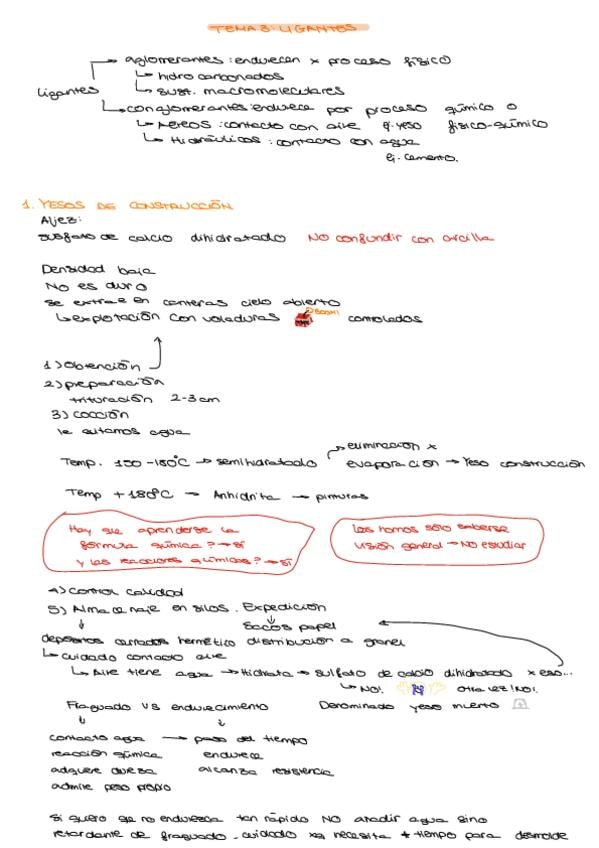 TEMA 3: LIGANTES
aglomerantes: endurecen x proceso físico
hidrocarbonados
sust. macromoleculares
Ligantes
conglomerantes: endurece por proceso químico o
Aéreos: contacto con aire Ej. yeso físico-químico
Hidráulicos: contacto con agua
Ej. cemento.
1. YESOS DE CONSTRUCCIÓN
Aljez:
sulfato de calcio dihidratado NO confundir con arcilla
Densidad baja
NO es duro
se extrae en canteras cielo abierto
explotación con voladuras BOOM! controlados
1) Obtención
2) preparación
trituración 2-3 cm
3) cocción
le quitamos agua
eliminación x
Temp. 150-180ºC → semihidratado evaporación → Yeso construcción
Temp +180ºC → Anhidrita → pinturas
Hay que aprenderse la
fórmula química? → SÍ
y las reacciones químicas? → SÍ
Los hornos sólo saberse
visión general → NO estudiar
4) control calidad
5) Almacenaje en silos. Expedición
sacos papel
depósitos cerrados hermético distribución a granel
cuidado contacto aire
Aire tiene agua → Hidrata → sulfato de calcio dihidratado x eso...
NO! otra vez! NO!
Fraguado VS endurecimiento Denominado yeso muerto
contacto agua → paso del tiempo
reacción química endurece
adquiere dureza alcanza resistencia
admite peso propio
Si quiero que no endurezca tan rápido NO añadir agua sino
retardante de fraguado. cuidado xq necesita + tiempo para desmolde